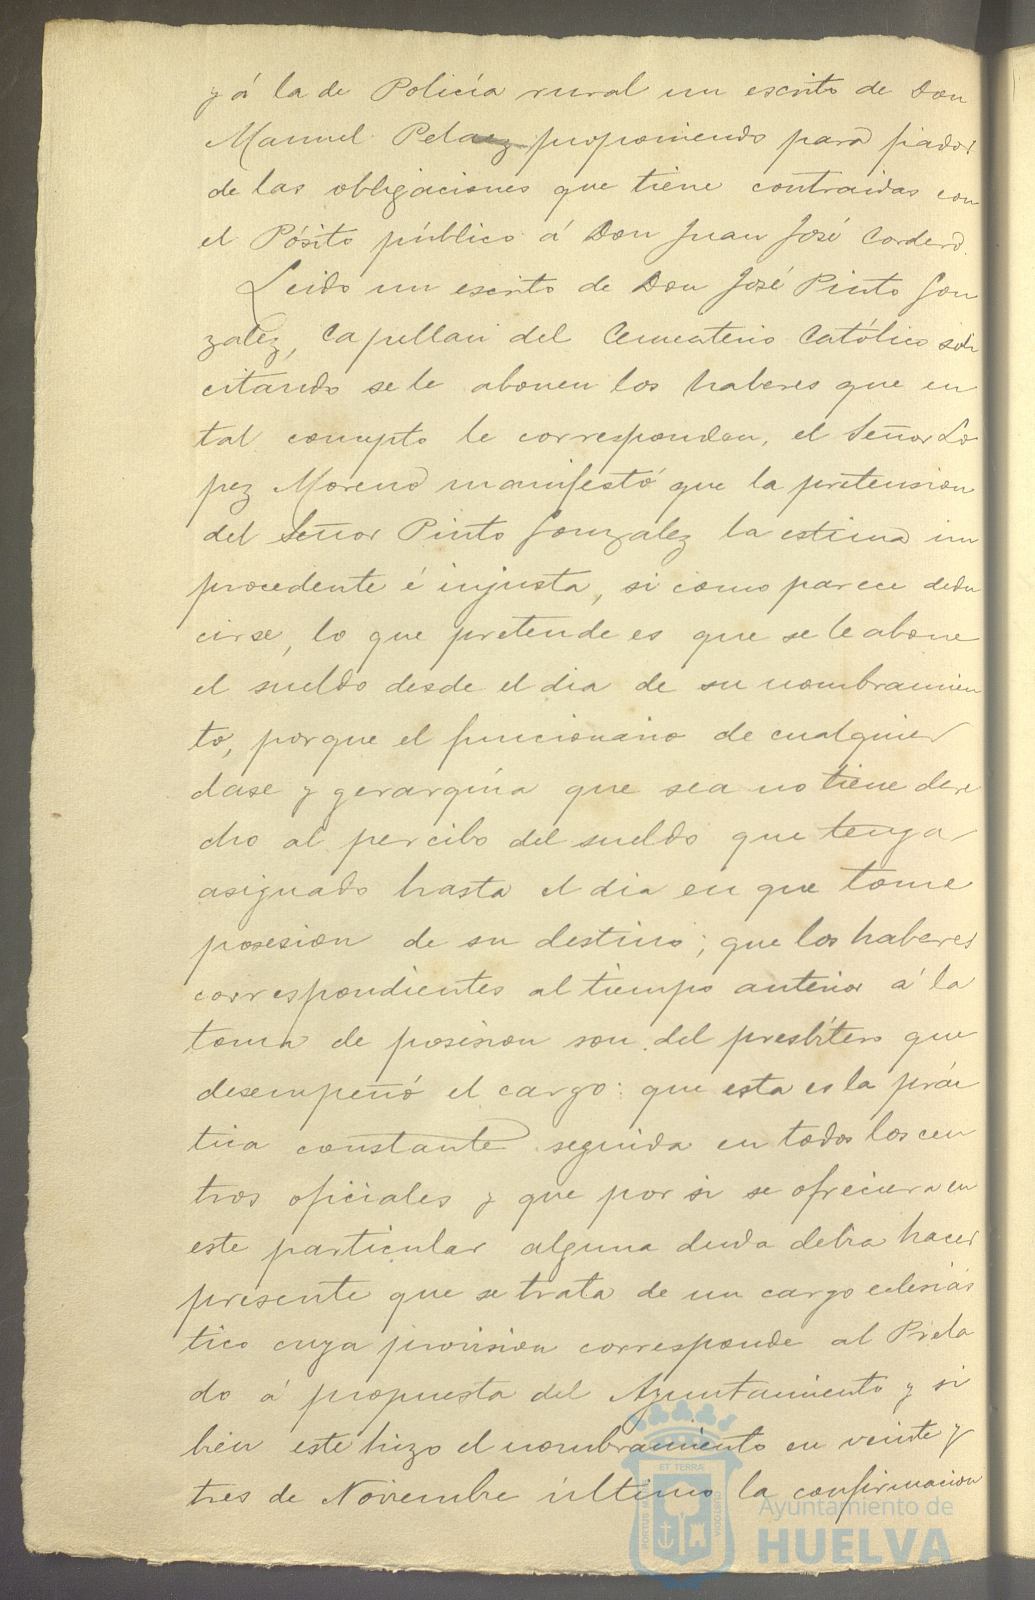 y á la de Policía rural un escrito de Don
Manuel Pelaez proponiendo para fiador
de las obligaciones que tiene contraidas con
el Pósito público á Don Juan José Cordero.
Leido un escrito de Don José Pinto Gon
zalez, Capellan del Cementerio Católico soli
citando se le abonen los haberes que en
tal concepto le correspondan, el Señor Lo
pez Moreno manifestó que la pretension
del Señor Pinto Gonzalez la estima im
procedente é injusta, si como parece dedu
cirse, lo que pretende es que se le abone
el sueldo desde el dia de su nombramien
to, porque el funcionario de cualquier
clase y gerarquía que sea no tiene dere
cho al percibo del sueldo que tenga
asignado hasta el dia en que tome
posesion de su destino; que los haberes
correspondientes al tiempo anterior á la
toma de posesion son del presbítero que
desempeñó el cargo: que esta es la prác
tica constante seguida en todos los cen
tros oficiales y que por si se ofreciera en
este particular alguna duda debia hacer
presente que se trata de un cargo eclesiás
tico cuya provision corresponde al Prela
do á propuesta del Ayuntamiento y si
bien este hizo el nombramiento en veinte y
tres de Noviembre último la confirmacion
ET TERRAE
PORTUS MARIS
CUSTODIA
Ayuntamiento de
HUELVA